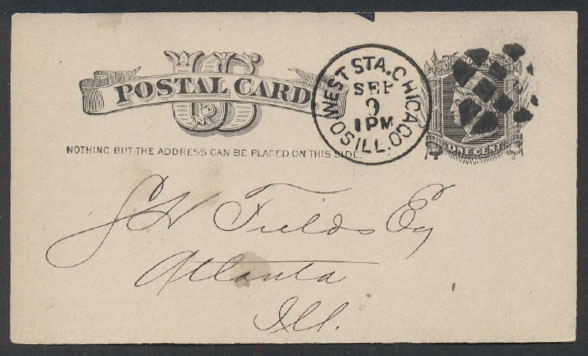 U S
POSTAL CARD
NOTHING BUT THE ADDRESS CAN BE PLACED ON THIS SIDE.
WEST STA. CHICAGO. ILL.
SEP
9
1 PM
ONE CENT
Fields Esq
Atlanta
Ill.